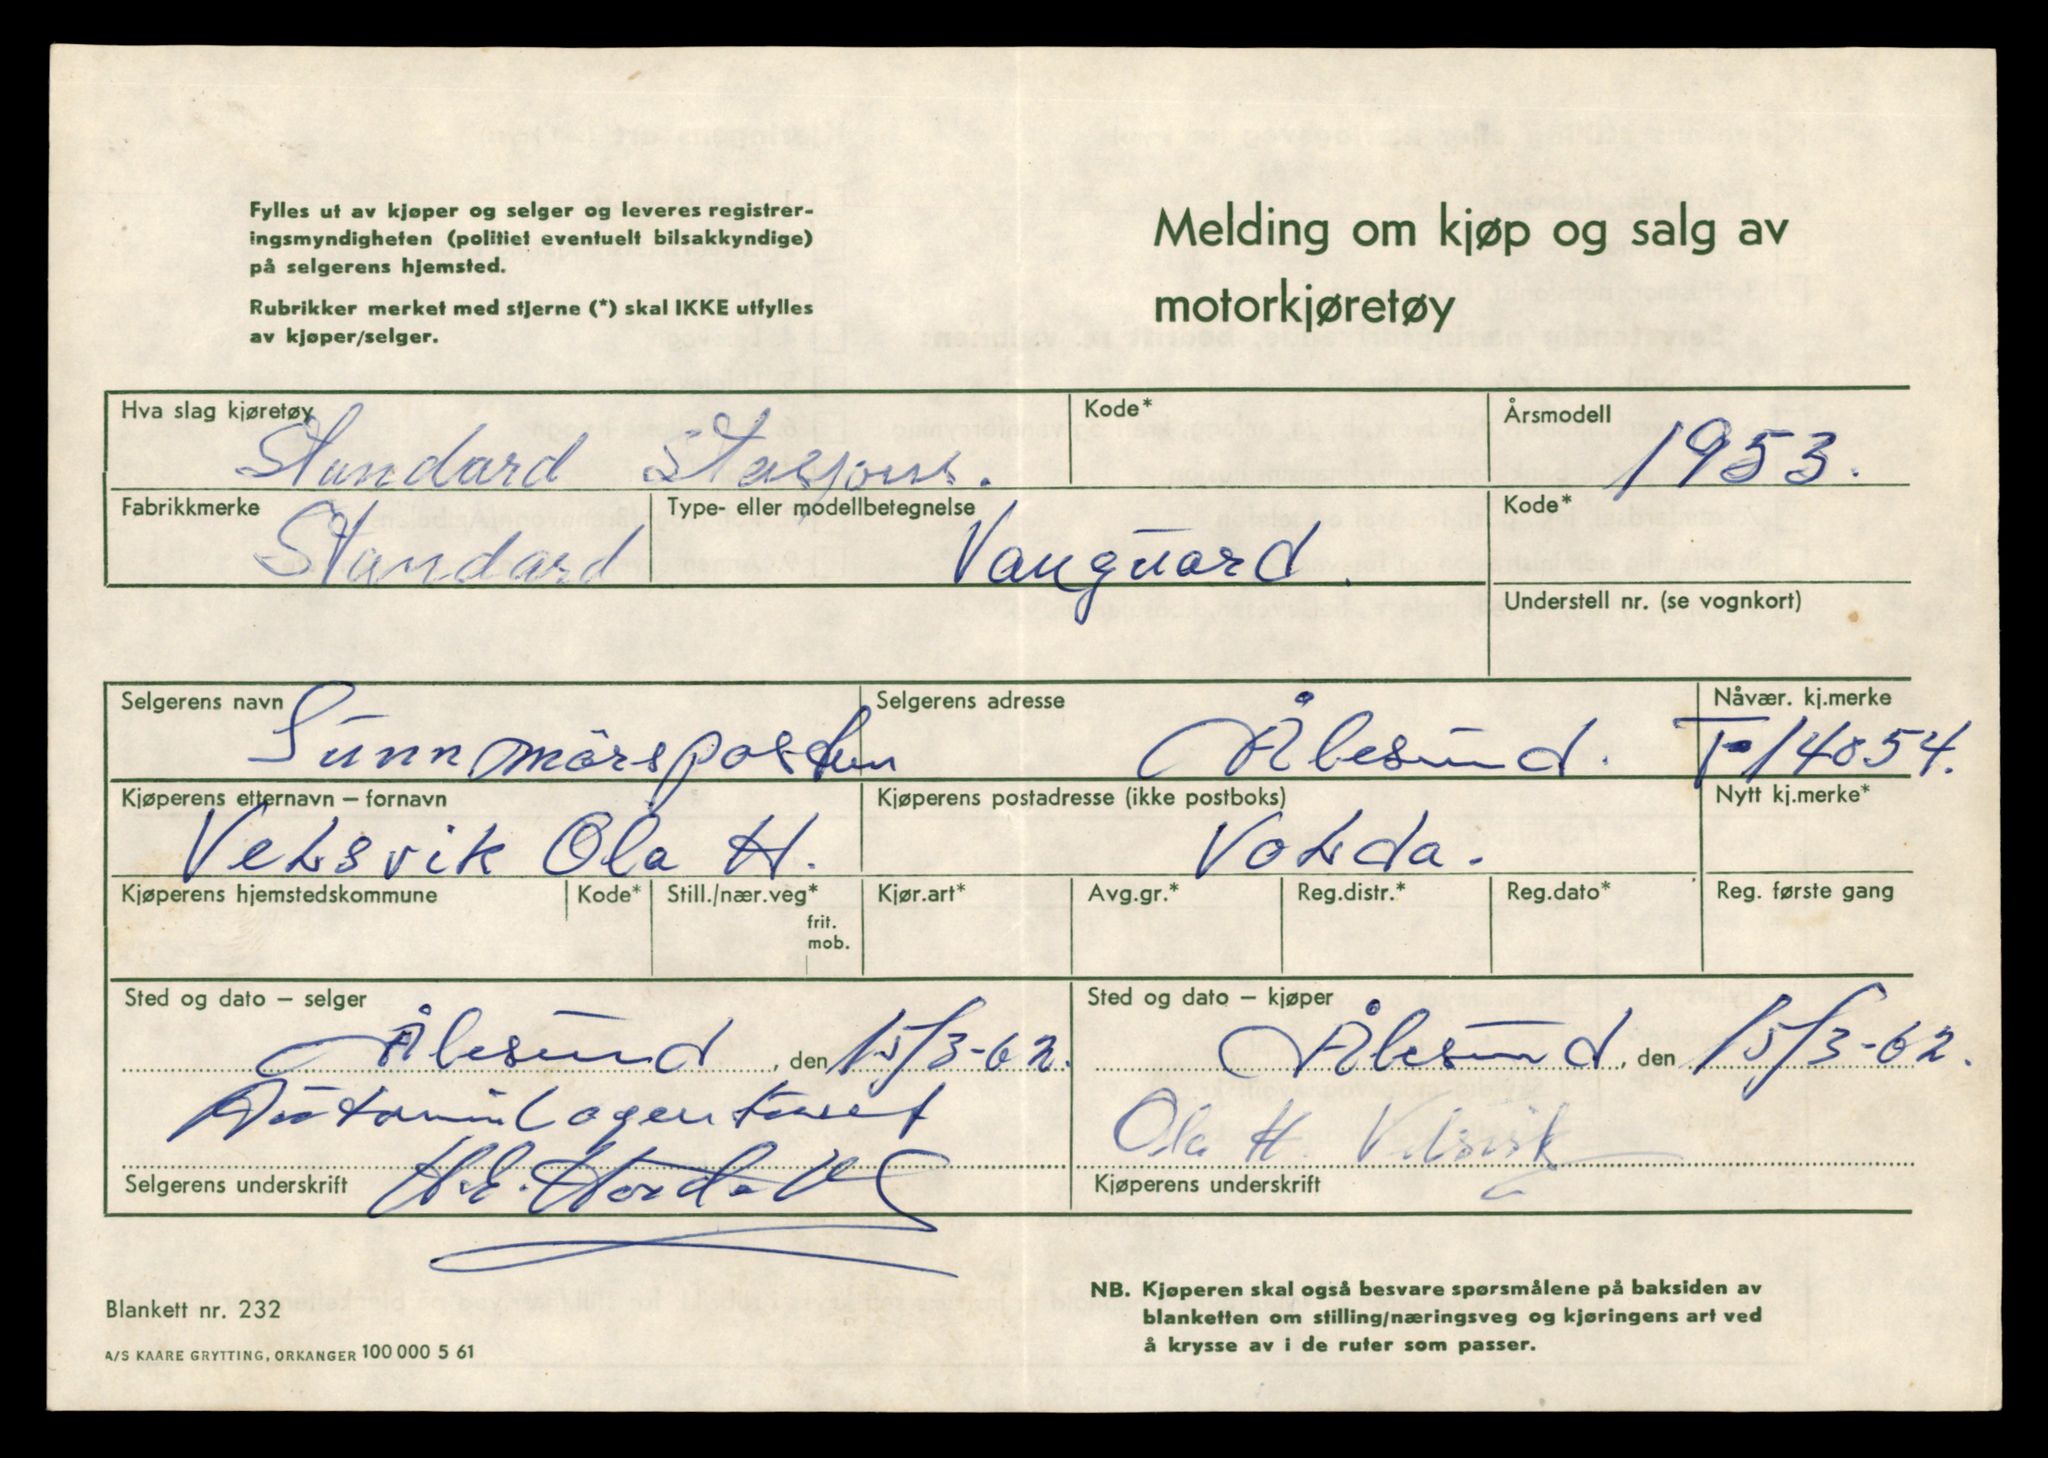 Fylles ut av kjøper og selger og leveres registrer-
ingsmyndigheten (politiet eventuelt bilsakkyndige)
på selgerens hjemsted.
Rubrikker merket med stjerne (*) skal IKKE utfylles
av kjøper/selger.
Melding om kjøp og salg av
motorkjøretøy
Hva slag kjøretøy
Standard Stasjons.
Kode*
Årsmodell
1953.
Fabrikkmerke
Standard
Type- eller modellbetegnelse
Vanguard.
Kode*
Understell nr. (se vognkort)
Selgerens navn
Sunnmörsposten
Selgerens adresse
Ålesund.
Nåvær. kj.merke
T-14854.
Kjøperens etternavn – fornavn
Velsvik Ola H.
Kjøperens postadresse (ikke postboks)
Volda.
Nytt kj.merke*
Kjøperens hjemstedskommune
Kode*
Still./nær.veg*
frit.
mob.
Kjør.art*
Avg.gr.*
Reg.distr.*
Reg.dato*
Reg. første gang
Sted og dato – selger
Ålesund, den 15/3-62.
Sted og dato – kjøper
Ålesund, den 15/3-62.
Ola H. Velsvik
Selgerens underskrift
Kjøperens underskrift
Blankett nr. 232
A/S KAARE GRYTTING, ORKANGER 100 000 5 61
NB. Kjøperen skal også besvare spørsmålene på baksiden av
blanketten om stilling/næringsveg og kjøringens art ved
å krysse av i de ruter som passer.